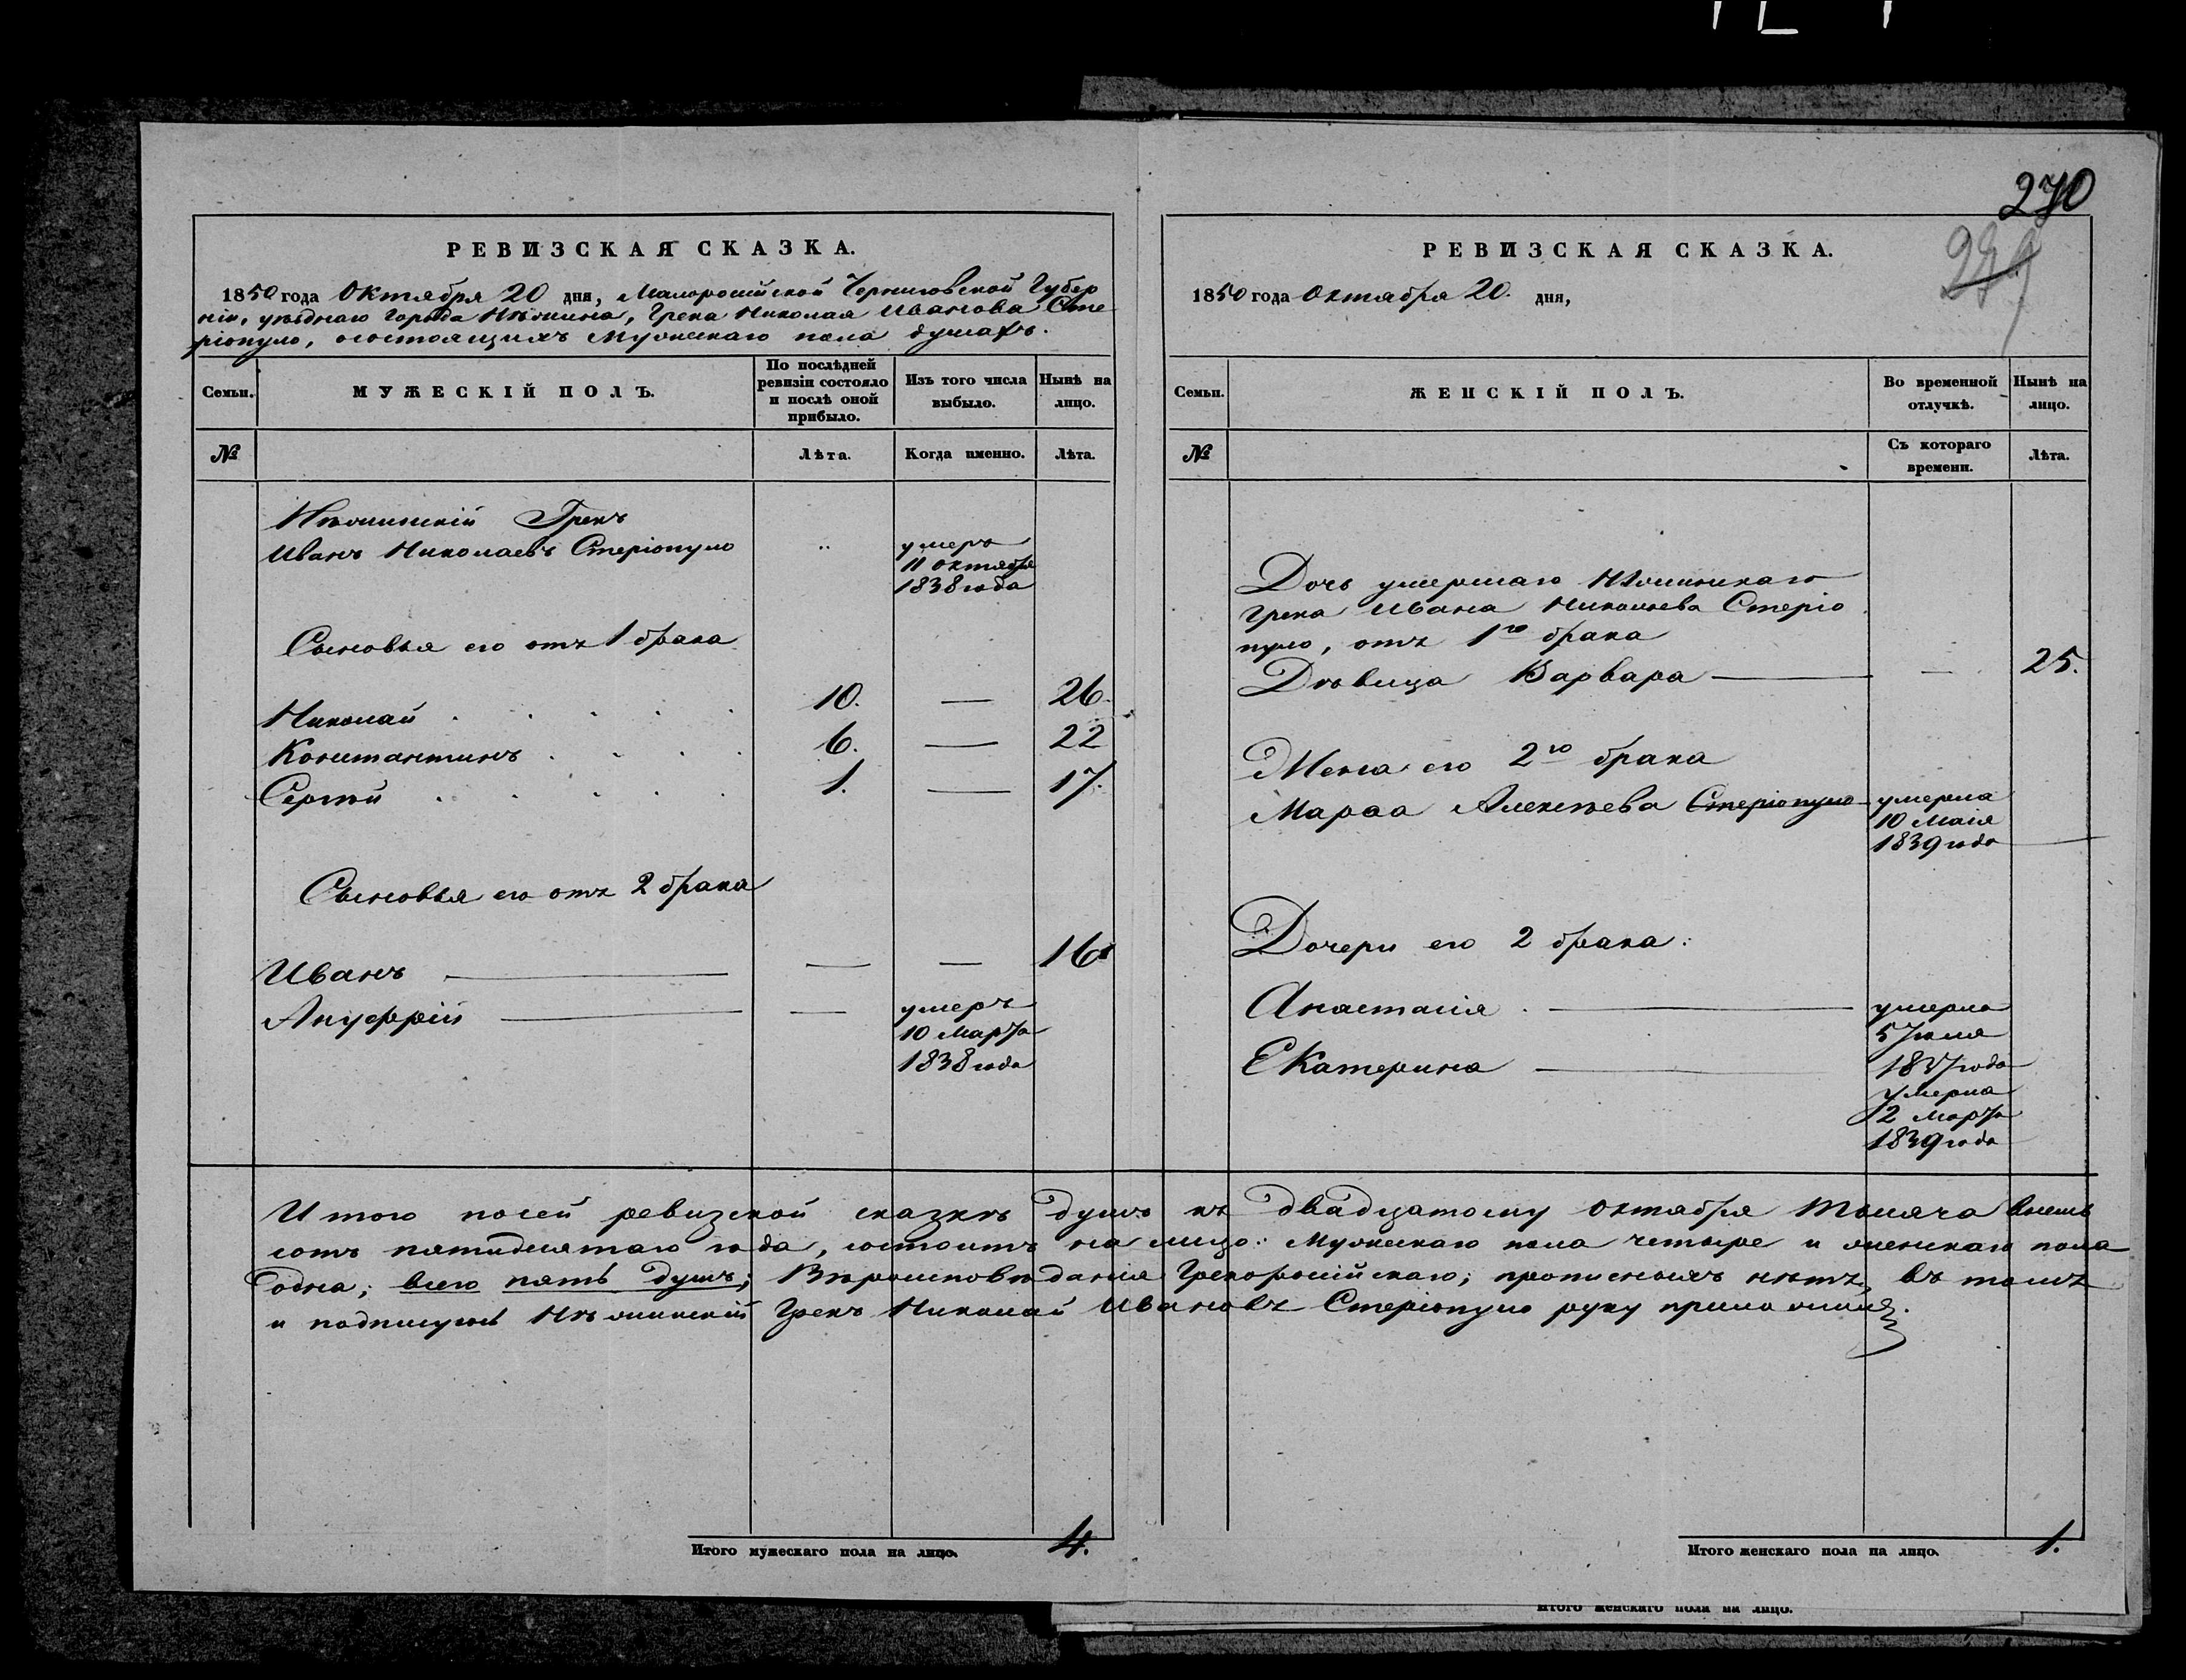 270
РЕВИЗСКАЯ СКАЗКА.
1850 года Октября 20 дня, Малоросийской Черниговской Губер
ніи, уѣзднаго города Нѣжина, Грека Николая Иванова Сте
ріопуло, осостоящихъ Мужескаго пола душахъ.
Семьи.
МУЖЕСКІЙ ПОЛЪ.
По послѣдней ревизіи состояло и послѣ оной прибыло.
Изъ того числа выбыло.
Нынѣ на лицо.
№
Лѣта.
Когда именно.
Лѣта.
Нѣжинскій Грекъ
Иванъ Николаевъ Стеріопуло умеръ
11 октября
1838 года
Сыновья его отъ 1 брака
Николай 10. — 26.
Константинъ 6. — 22
Сергѣй 1. — 17.
Сыновья его отъ 2 брака
Иванъ — — — 16
Ануфрій — — умеръ
10 Марта
1838 года
РЕВИЗСКАЯ СКАЗКА.
1850 года Октября 20. дня,
Семьи.
ЖЕНСКІЙ ПОЛЪ.
Во временной отлучкѣ.
Нынѣ на лицо.
№
Съ котораго времени.
Лѣта.
Дочь умершаго Нѣжинскаго
Грека Ивана Николаева Стеріо
пуло, отъ 1го брака
Дѣвица Варвара — — 25.
Жена его 2го брака
Марфа Алексѣева Стеріопуло умерла
10 Маія
1839 года
Дочери его 2 брака:
Анастасія — умерла
5 Іюля
1837 года
Екатерина — умерла
2 Марта
1839 года
Итого посей ревизской сказкѣ душъ къ двадцатому октября тысяча восемь
сотъ пятидесятаго года, состоитъ на лицо: Мужескаго пола четыре и женскаго пола
одна; всего пять душъ; Вѣроисповѣданія Грекоросійскаго; прописныхъ нѣтъ, въ томъ
и подписуюсь Нѣжинскій Грекъ Николай Ивановъ Стеріопуло руку приложилъ.
Итого мужескаго пола на лицо. 4.
Итого женскаго пола на лицо. 1.
Итого женскаго пола на лицо.